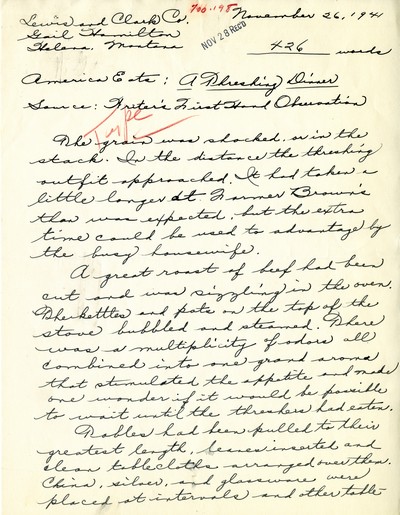 700-198
Lewis and Clark Co.
November 26, 1941
Gail Hamilton
Helena, Montana
NOV 28 REC'D
426 words
America Eats: A Threshing Dinner
Source: Writer's First Hand Observation
Type
The grain was shocked, or in the
stack. In the distance the threshing
outfit approached. It had taken a
little longer at Farmer Brown's
than was expected, but the extra
time could be used to advantage by
the busy housewife.
A great roast of beef had been
cut and was sizzling in the oven.
The kettles and pots on the top of the
stove bubbled and steamed. There
was a multiplicity of odors all
combined into one grand aroma
that stimulated the appetite and made
one wonder if it would be possible
to wait until the threshers had eaten.
Tables had been pulled to their
greatest length, leaves inserted and
clean tablecloths arranged over them.
China, silver, and glassware were
placed at intervals and other table-